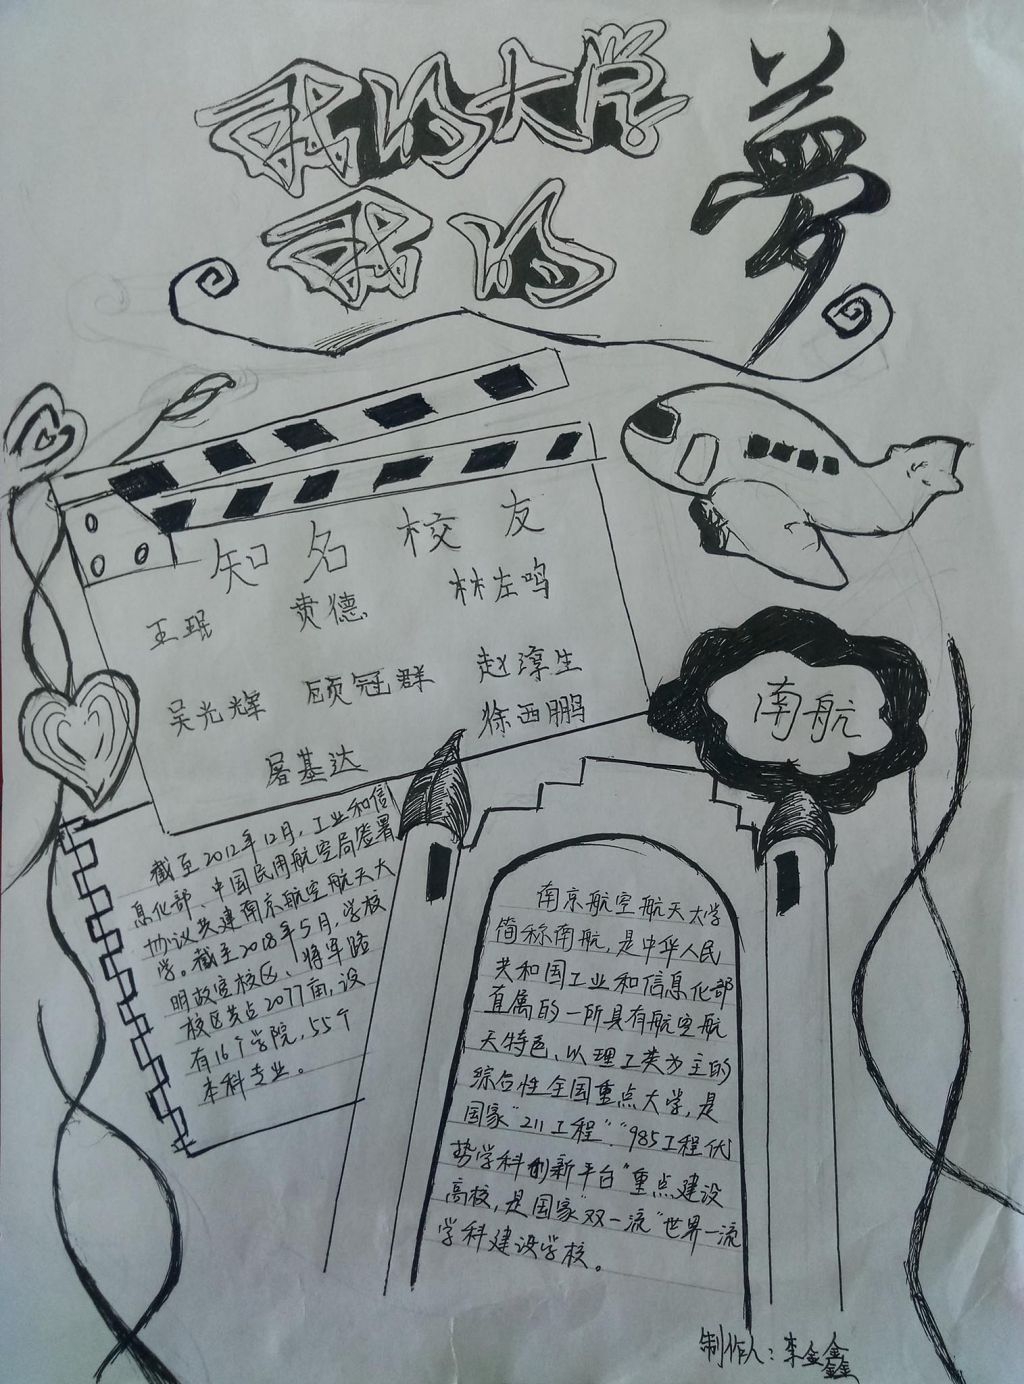 我的大学
我的
夢
知名校友
王珉 贲德 林左鸣
吴光辉 顾冠群 赵淳生
徐西鹏
屠基达
南航
截至2012年12月，工业和信
息化部、中国民用航空局签署
协议共建南京航空航天大
学。截至2018年5月，学校
明故宫校区、将军路
校区共占2077亩，设
有16个学院，55个
本科专业。
南京航空航天大学
简称南航，是中华人民
共和国工业和信息化部
直属的一所具有航空航
天特色、以理工类为主的
综合性全国重点大学，是
国家“211工程”“985工程优
势学科创新平台”重点建设
高校，是国家“双一流”世界一流
学科建设学校。
制作人：李金鑫